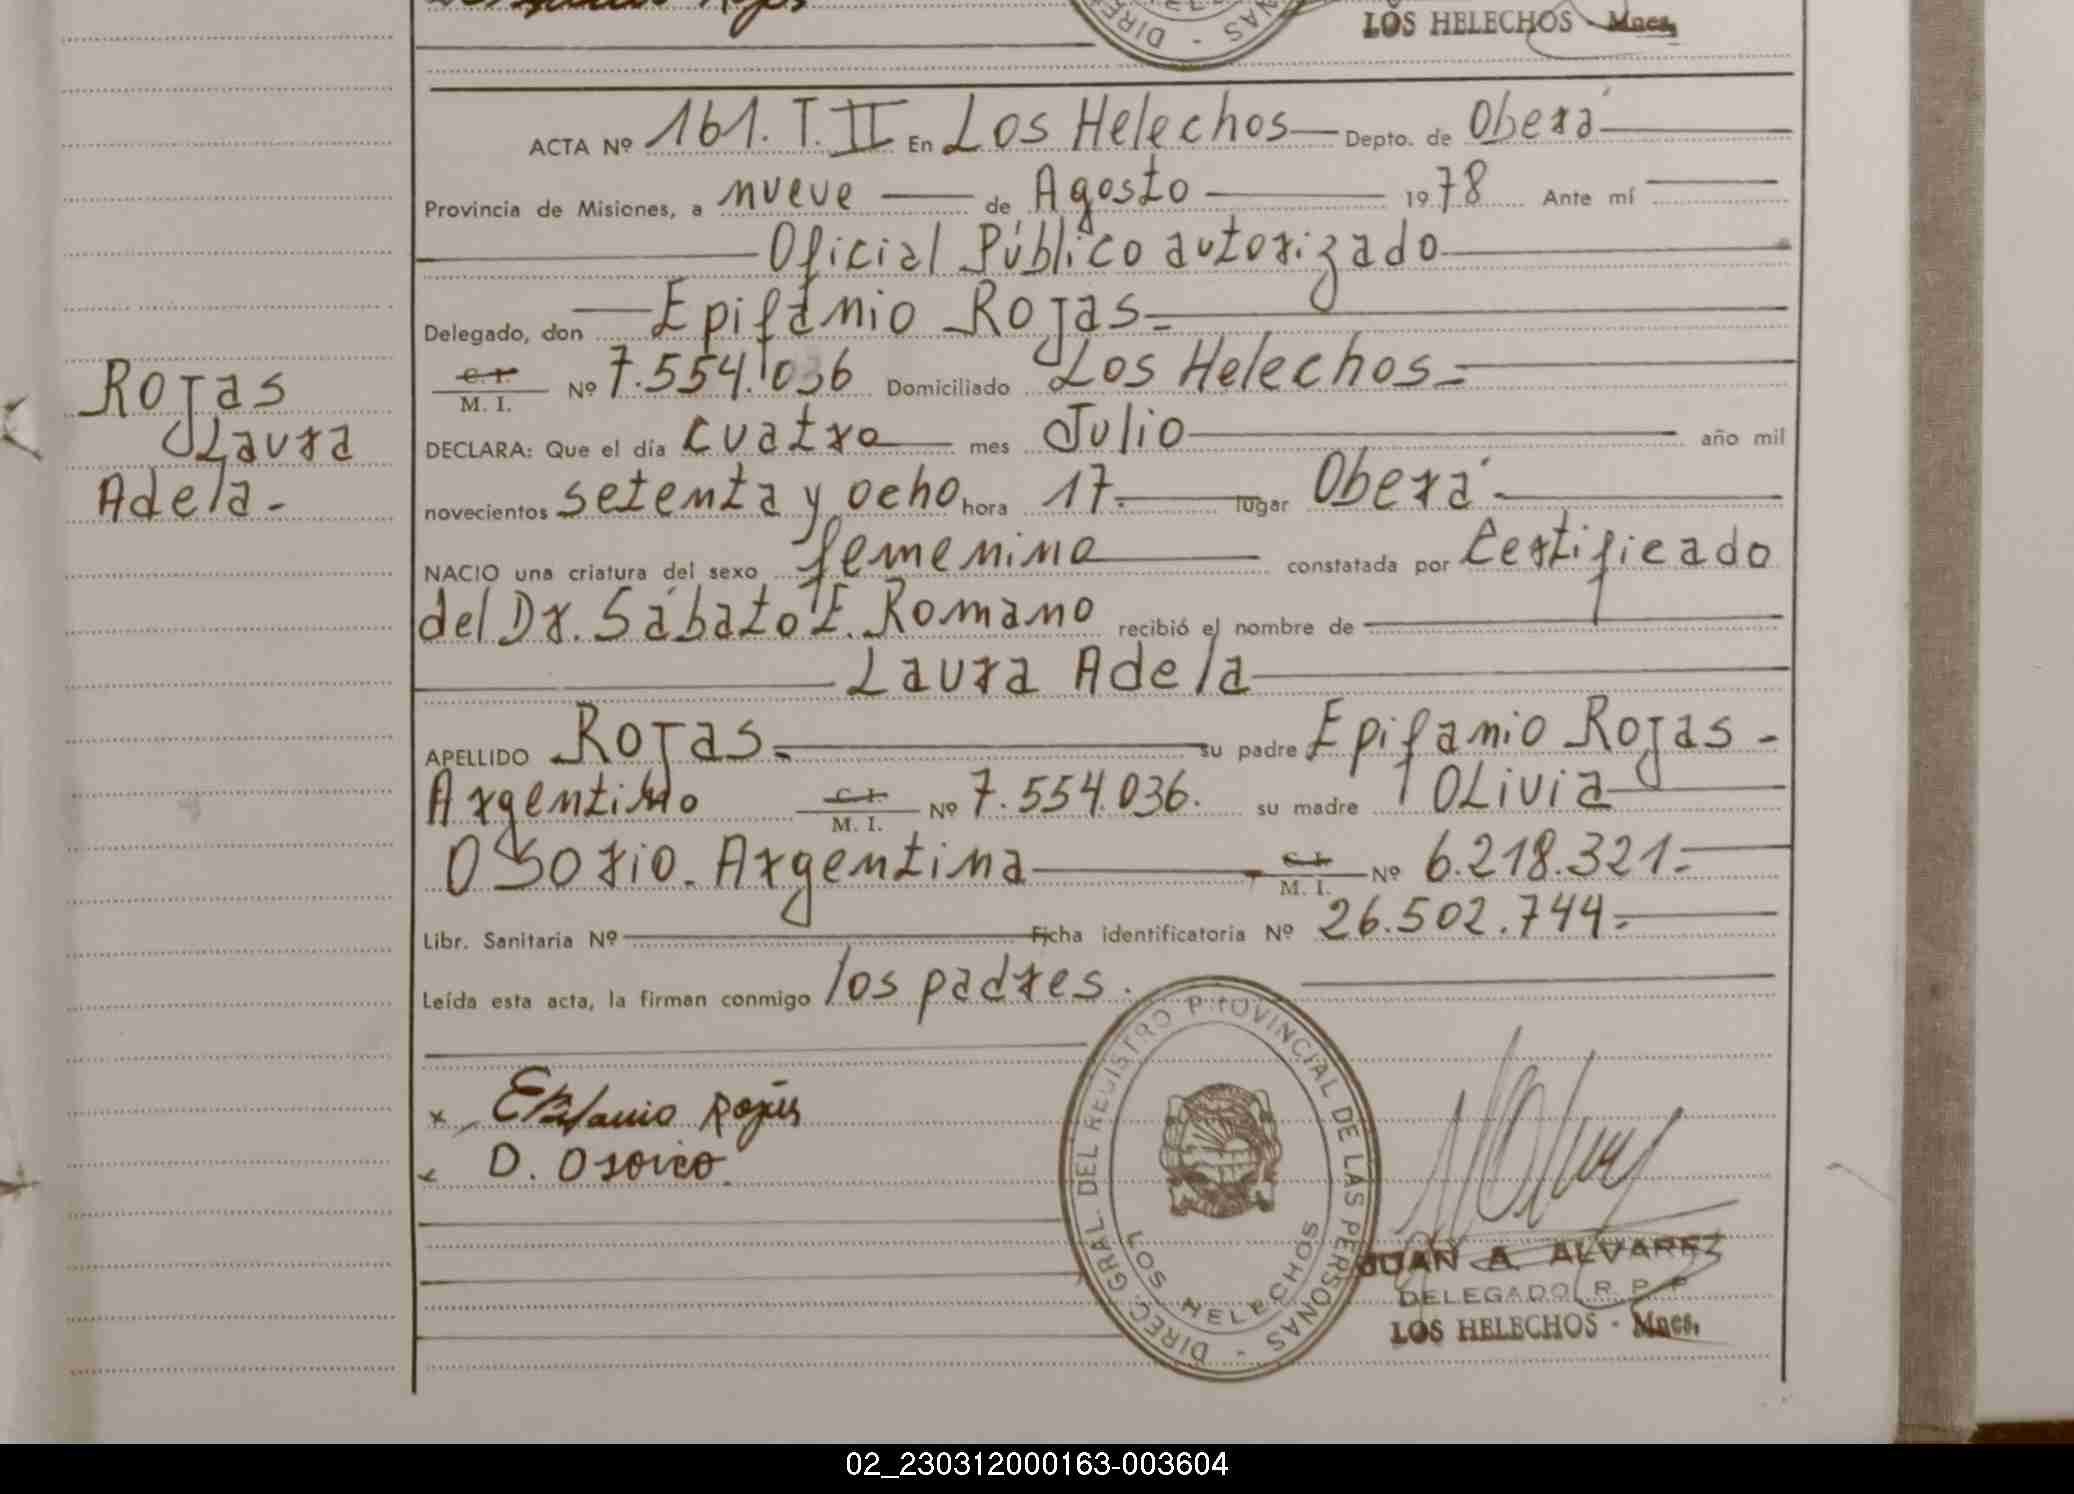 LOS HELECHOS - Mnes.
ACTA Nº 161. T. II En Los Helechos Depto. de Oberá
Provincia de Misiones, a nueve de Agosto 1978 Ante mí
Oficial Público autorizado
Delegado, don Epifanio Rojas
C. I.
M. I. Nº 7.554.036 Domiciliado Los Helechos
Rojas
DECLARA: Que el día cuatro mes Julio año mil
Laura
novecientos setenta y ocho hora 17 lugar Oberá
Adela
NACIO una criatura del sexo femenino constatada por Certificado
del Dr. Sábato E. Romano recibió el nombre de
Laura Adela
APELLIDO Rojas su padre Epifanio Rojas
Argentino C. I. M. I. Nº 7.554.036. su madre Olivia
Osorio. Argentina C. I. M. I. Nº 6.218.321
Libr. Sanitaria Nº Ficha identificatoria Nº 26.502.744
Leída esta acta, la firman conmigo los padres.
x Epifanio Rojas
x D. Osorio
DIREC. GRAL. DEL REGISTRO PROVINCIAL DE LAS PERSONAS -
LOS HELECHOS
JUAN A. ALVAREZ
DELEGADO R. P. P.
LOS HELECHOS - Mnes.
02_230312000163-003604